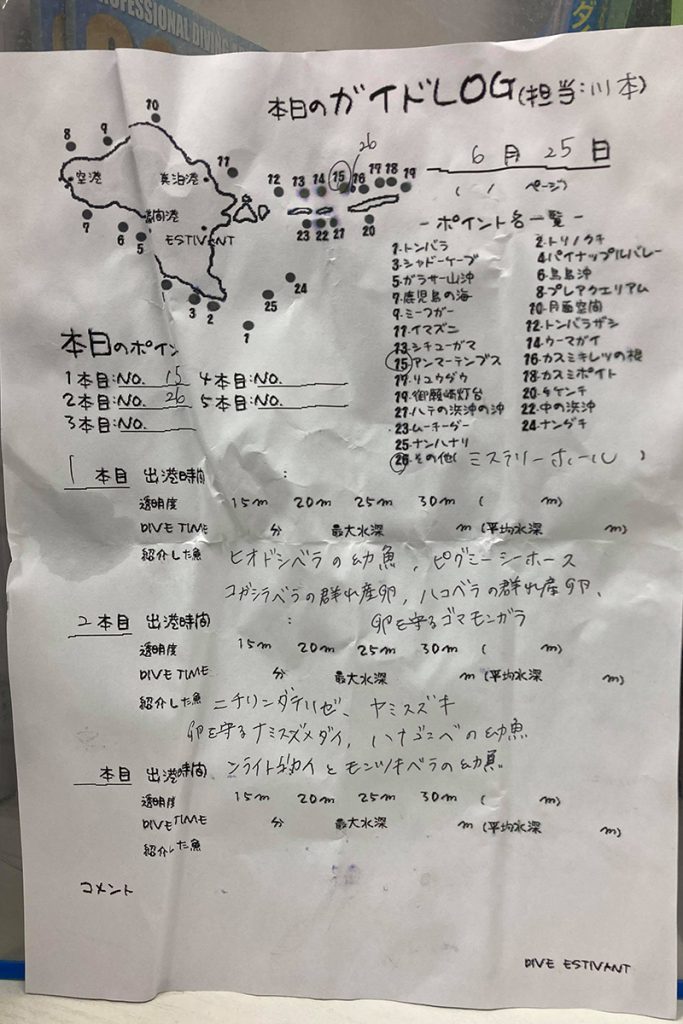 PROFESSIONAL DIVING
本日のガイドLOG(担当:川本)
6月25日
( / ページ)
10
8
9
空港
真泊港
11
26
12
13
14
15
16
17
18
19
7
6
5
ESTIVANT
23
22
21
20
24
25
3
2
1
-ポイント名一覧-
1.トンバラ
2.トリノクチ
3.シャドーケーブ
4.パイナップルバレー
5.ガラサー山沖
6.鳥島沖
7.鹿児島の海
8.プレアクエリアム
9.ミーフガー
10.月面空間
11.イマズニ
12.トンバラガシ
13.シチューガマ
14.ウーマガイ
15.アンマーテンプス
16.カスミキレツの根
17.リュウグウ
18.カスミポイント
19.御願崎灯台
20.チゲンチ
21.ハテの浜沖の沖
22.中の浜沖
23.ムーキーダー
24.ナンダキ
25.ナンハナリ
26.その他(ミステリーホール)
本日のポイン
1本目:NO. 15 4本目:NO.
2本目:NO. 26 5本目:NO.
3本目:NO.
1 本目 出港時間 :
透明度 15m 20m 25m 30m ( m)
DIVE TIME 分 最大水深 m (平均水深 m)
紹介した魚 ヒオドシベラの幼魚, ピグミーシーホース
コガシラベラの群れ産卵, ハコベラの群れ産卵、
卵を守るゴマモンガラ
2 本目 出港時間 :
透明度 15m 20m 25m 30m ( m)
DIVE TIME 分 最大水深 m (平均水深 m)
紹介した魚 ニチリンダテハゼ、ヤミスズキ
卵を守るナミスズメダイ, ハナゴンベの幼魚
本目 出港時間 とモンツキベラの幼魚
透明度 15m 20m 25m 30m ( m)
DIVE TIME 分 最大水深 m (平均水深 m)
紹介した魚
コメント
DIVE ESTIVANT